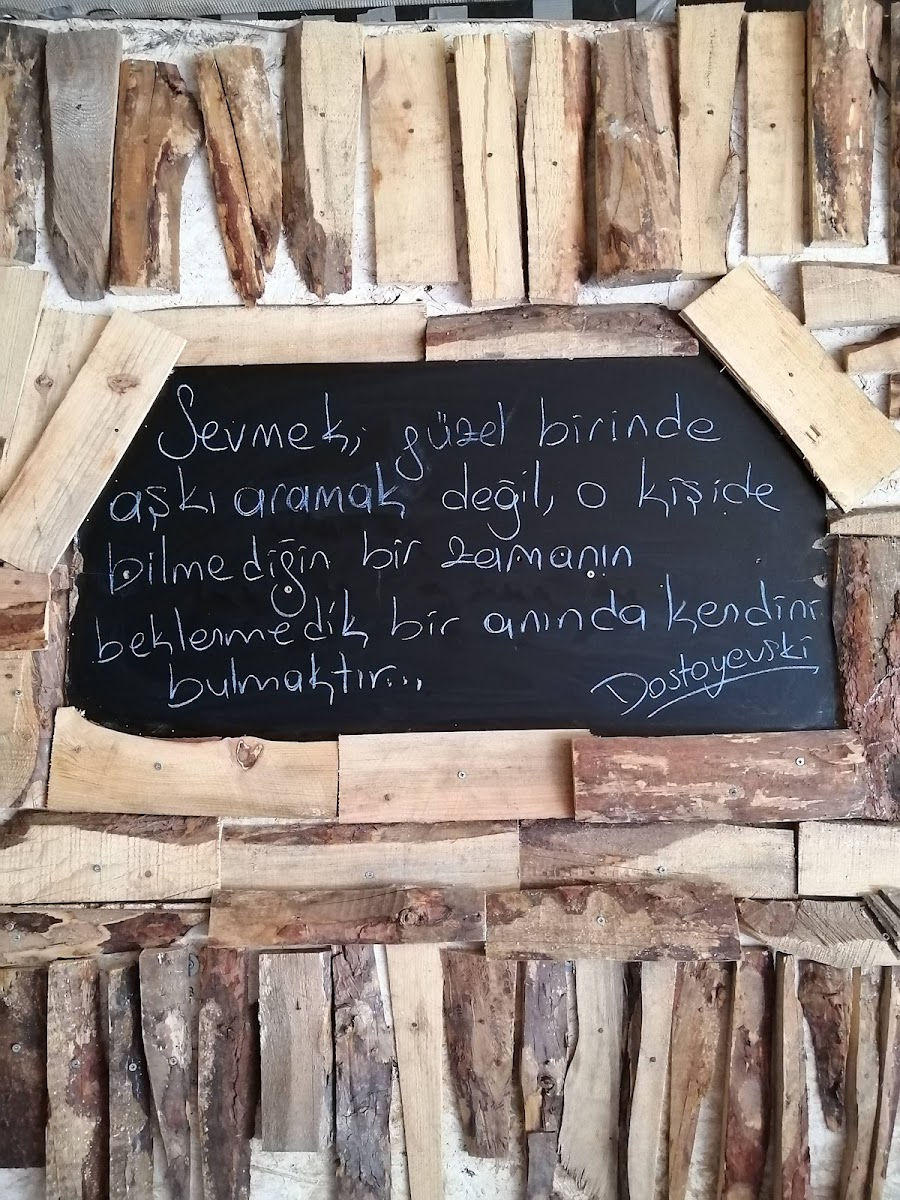 Sevmek, güzel birinde
aşkı aramak değil, o kişide
bilmediğin bir zamanın
beklenmedik bir anında kendini
bulmaktır...
Dostoyevski